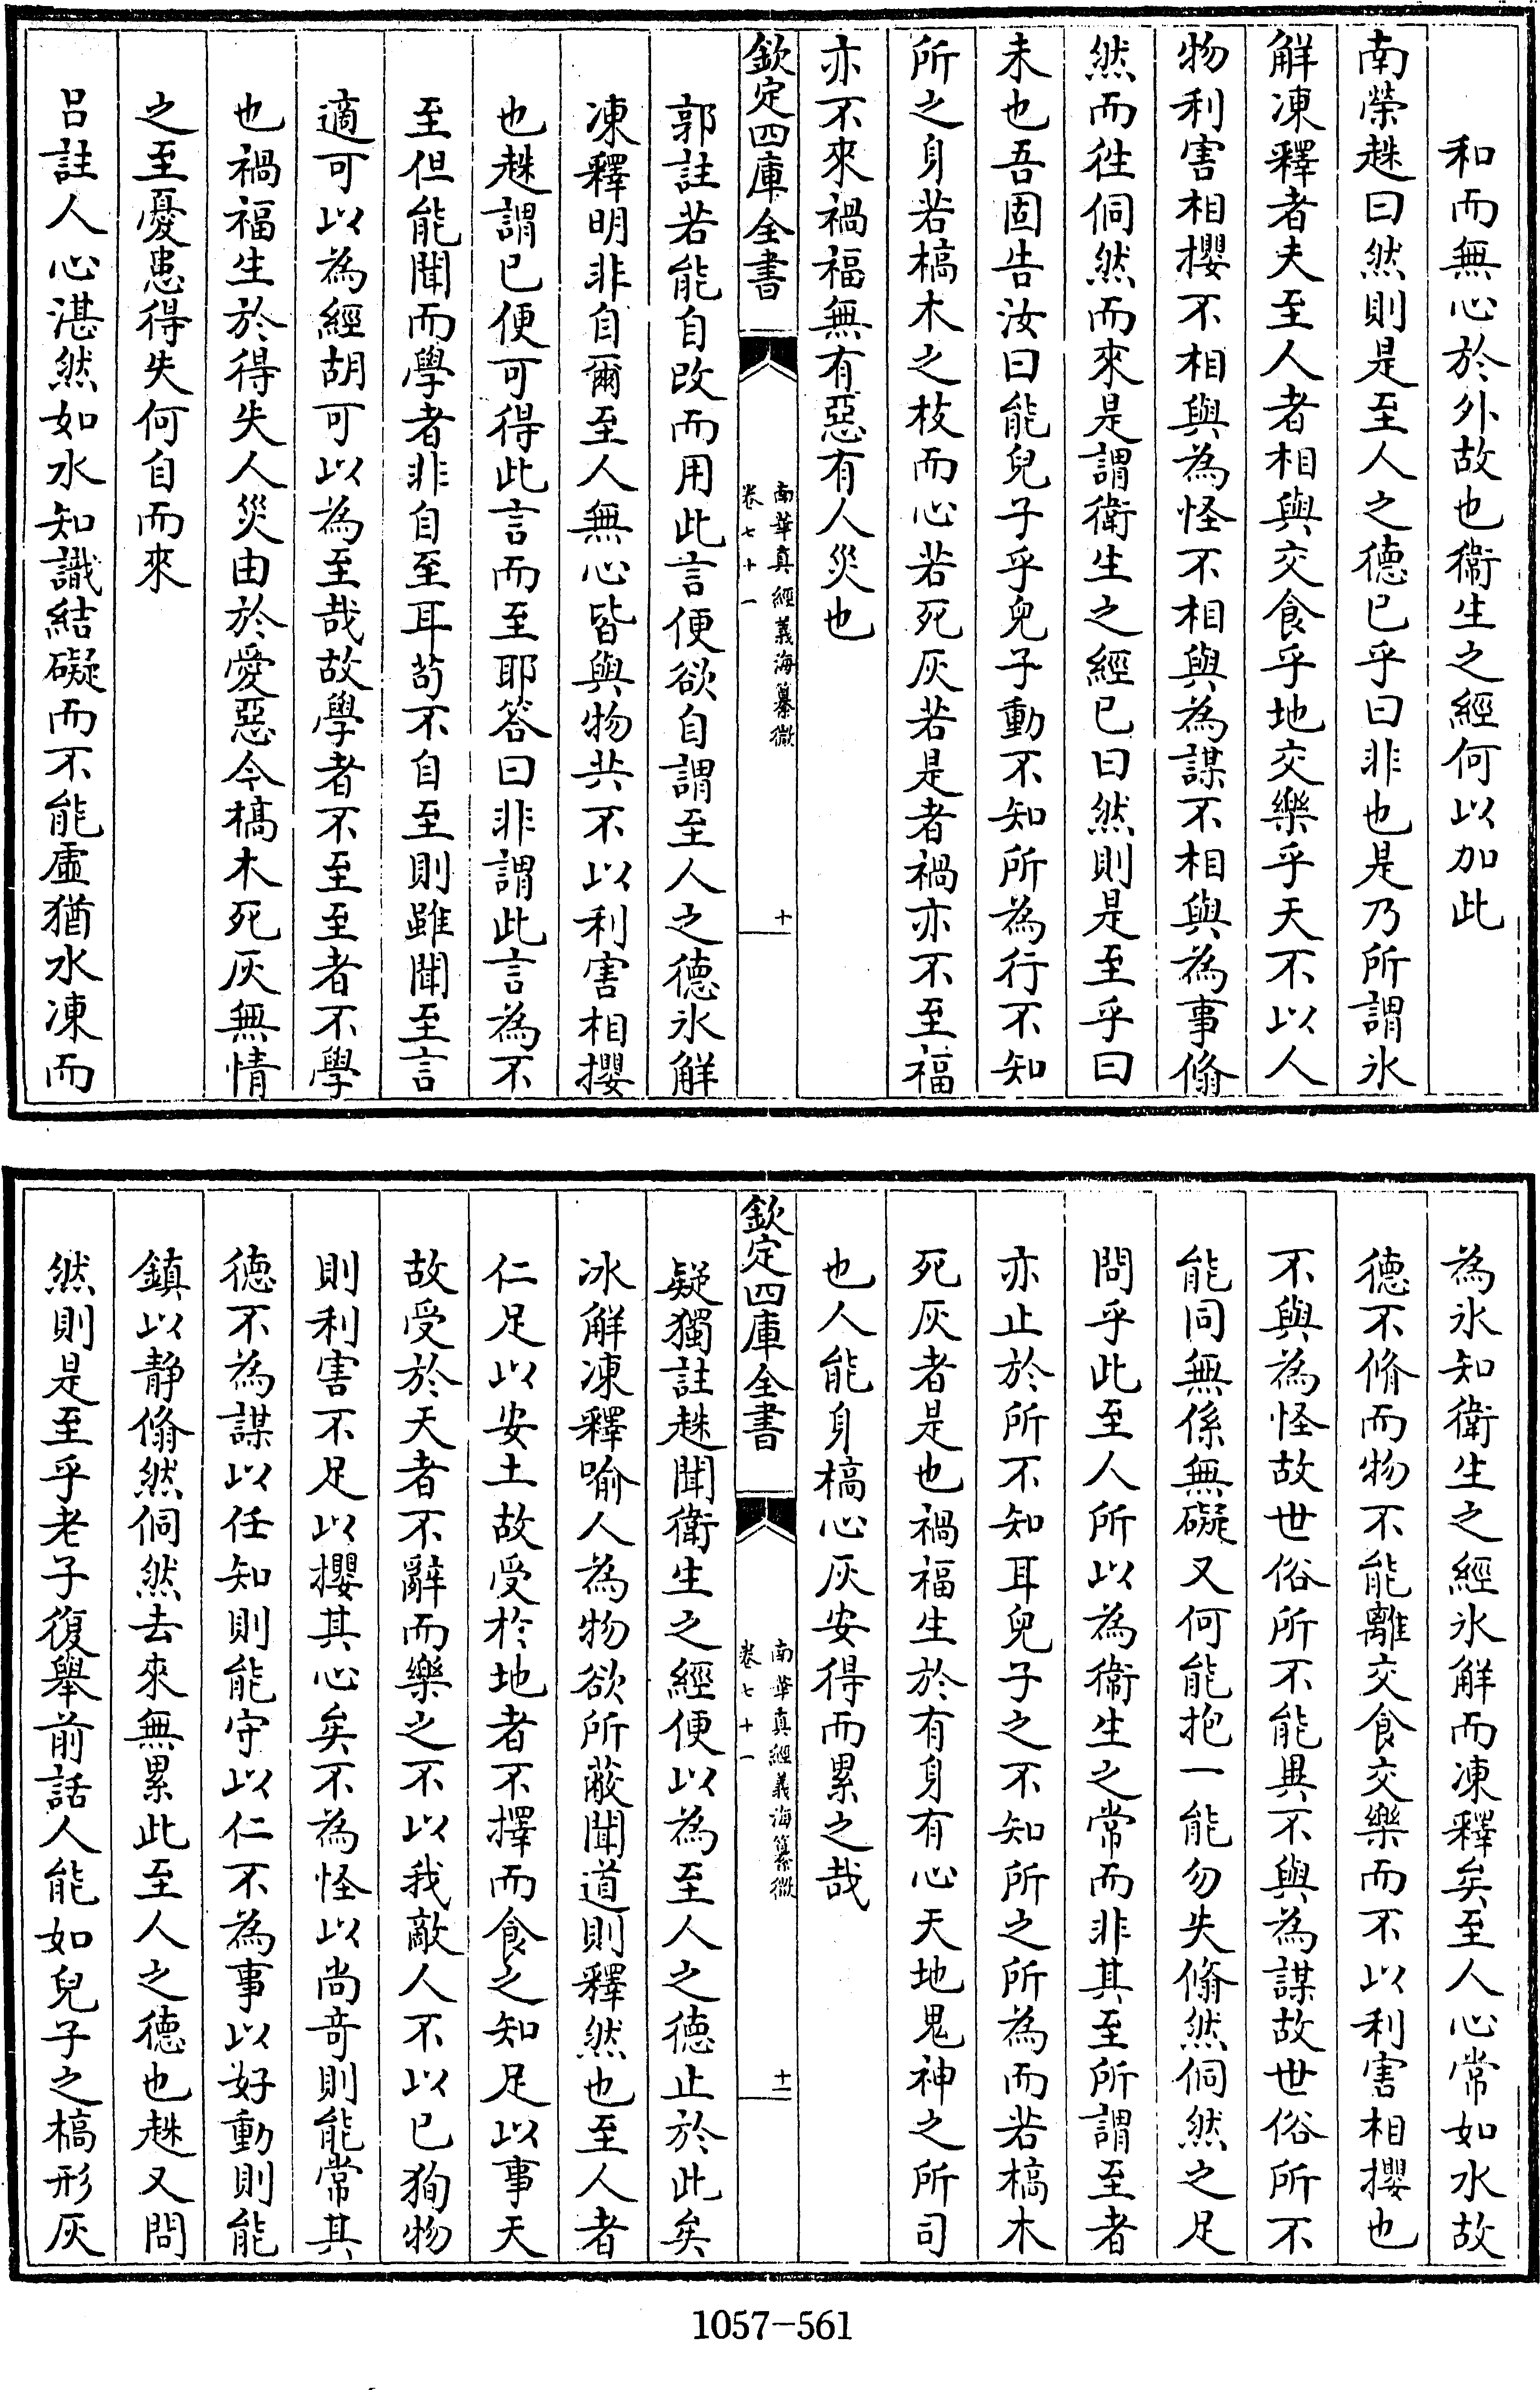 和而無心於外故也衞生之經何以加此
南榮趎曰然則是至人之德已乎曰非也是乃所謂氷
解凍釋者夫至人者相與交食乎地交樂乎天不以人
物利害相攖不相與為怪不相與為謀不相與為事翛
然而徃侗然而來是謂衛生之經已曰然則是至乎曰
未也吾固告汝曰能兒子乎兒子動不知所為行不知
所之身若槁木之枝而心若死灰若是者禍亦不至福
亦不來禍福無有惡有人災也
欽定四庫全書
南華真經義海纂微
卷七十一
十
郭註若能自改而用此言便欲自謂至人之德氷解
凍釋明非自爾至人無心皆與物共不以利害相攖
也趎謂已便可得此言而至耶答曰非謂此言為不
至但能聞而學者非自至耳苟不自至則雖聞至言
適可以為經胡可以為至哉故學者不至至者不學
也禍福生於得失人災由於愛惡今槁木死灰無情
之至憂患得失何自而來
吕註人心湛然如水知識結礙而不能虛猶水凍而
為氷知衛生之經氷解而凍釋矣至人心常如水故
德不脩而物不能離交食交樂而不以利害相攖也
不與為怪故世俗所不能異不與為謀故世俗所不
能同無係無礙又何能抱一能勿失翛然侗然之足
問乎此至人所以為衞生之常而非其至所謂至者
亦止於所不知耳兒子之不知所之所為而若槁木
死灰者是也禍福生於有身有心天地鬼神之所司
也人能身槁心灰安得而累之哉
欽定四庫全書
南華真經義海纂微
卷七十一
十一
疑獨註趎聞衛生之經便以為至人之德止於此矣
冰解凍釋喻人為物欲所蔽聞道則釋然也至人者
仁足以安土故受於地者不擇而食之知足以事天
故受於天者不辭而樂之不以我敵人不以已狥物
則利害不足以攖其心矣不為怪以尚奇則能常其
德不為謀以任知則能守以仁不為事以好動則能
鎮以静翛然侗然去來無累此至人之德也趎又問
然則是至乎老子復舉前話人能如兒子之槁形灰
1057-561